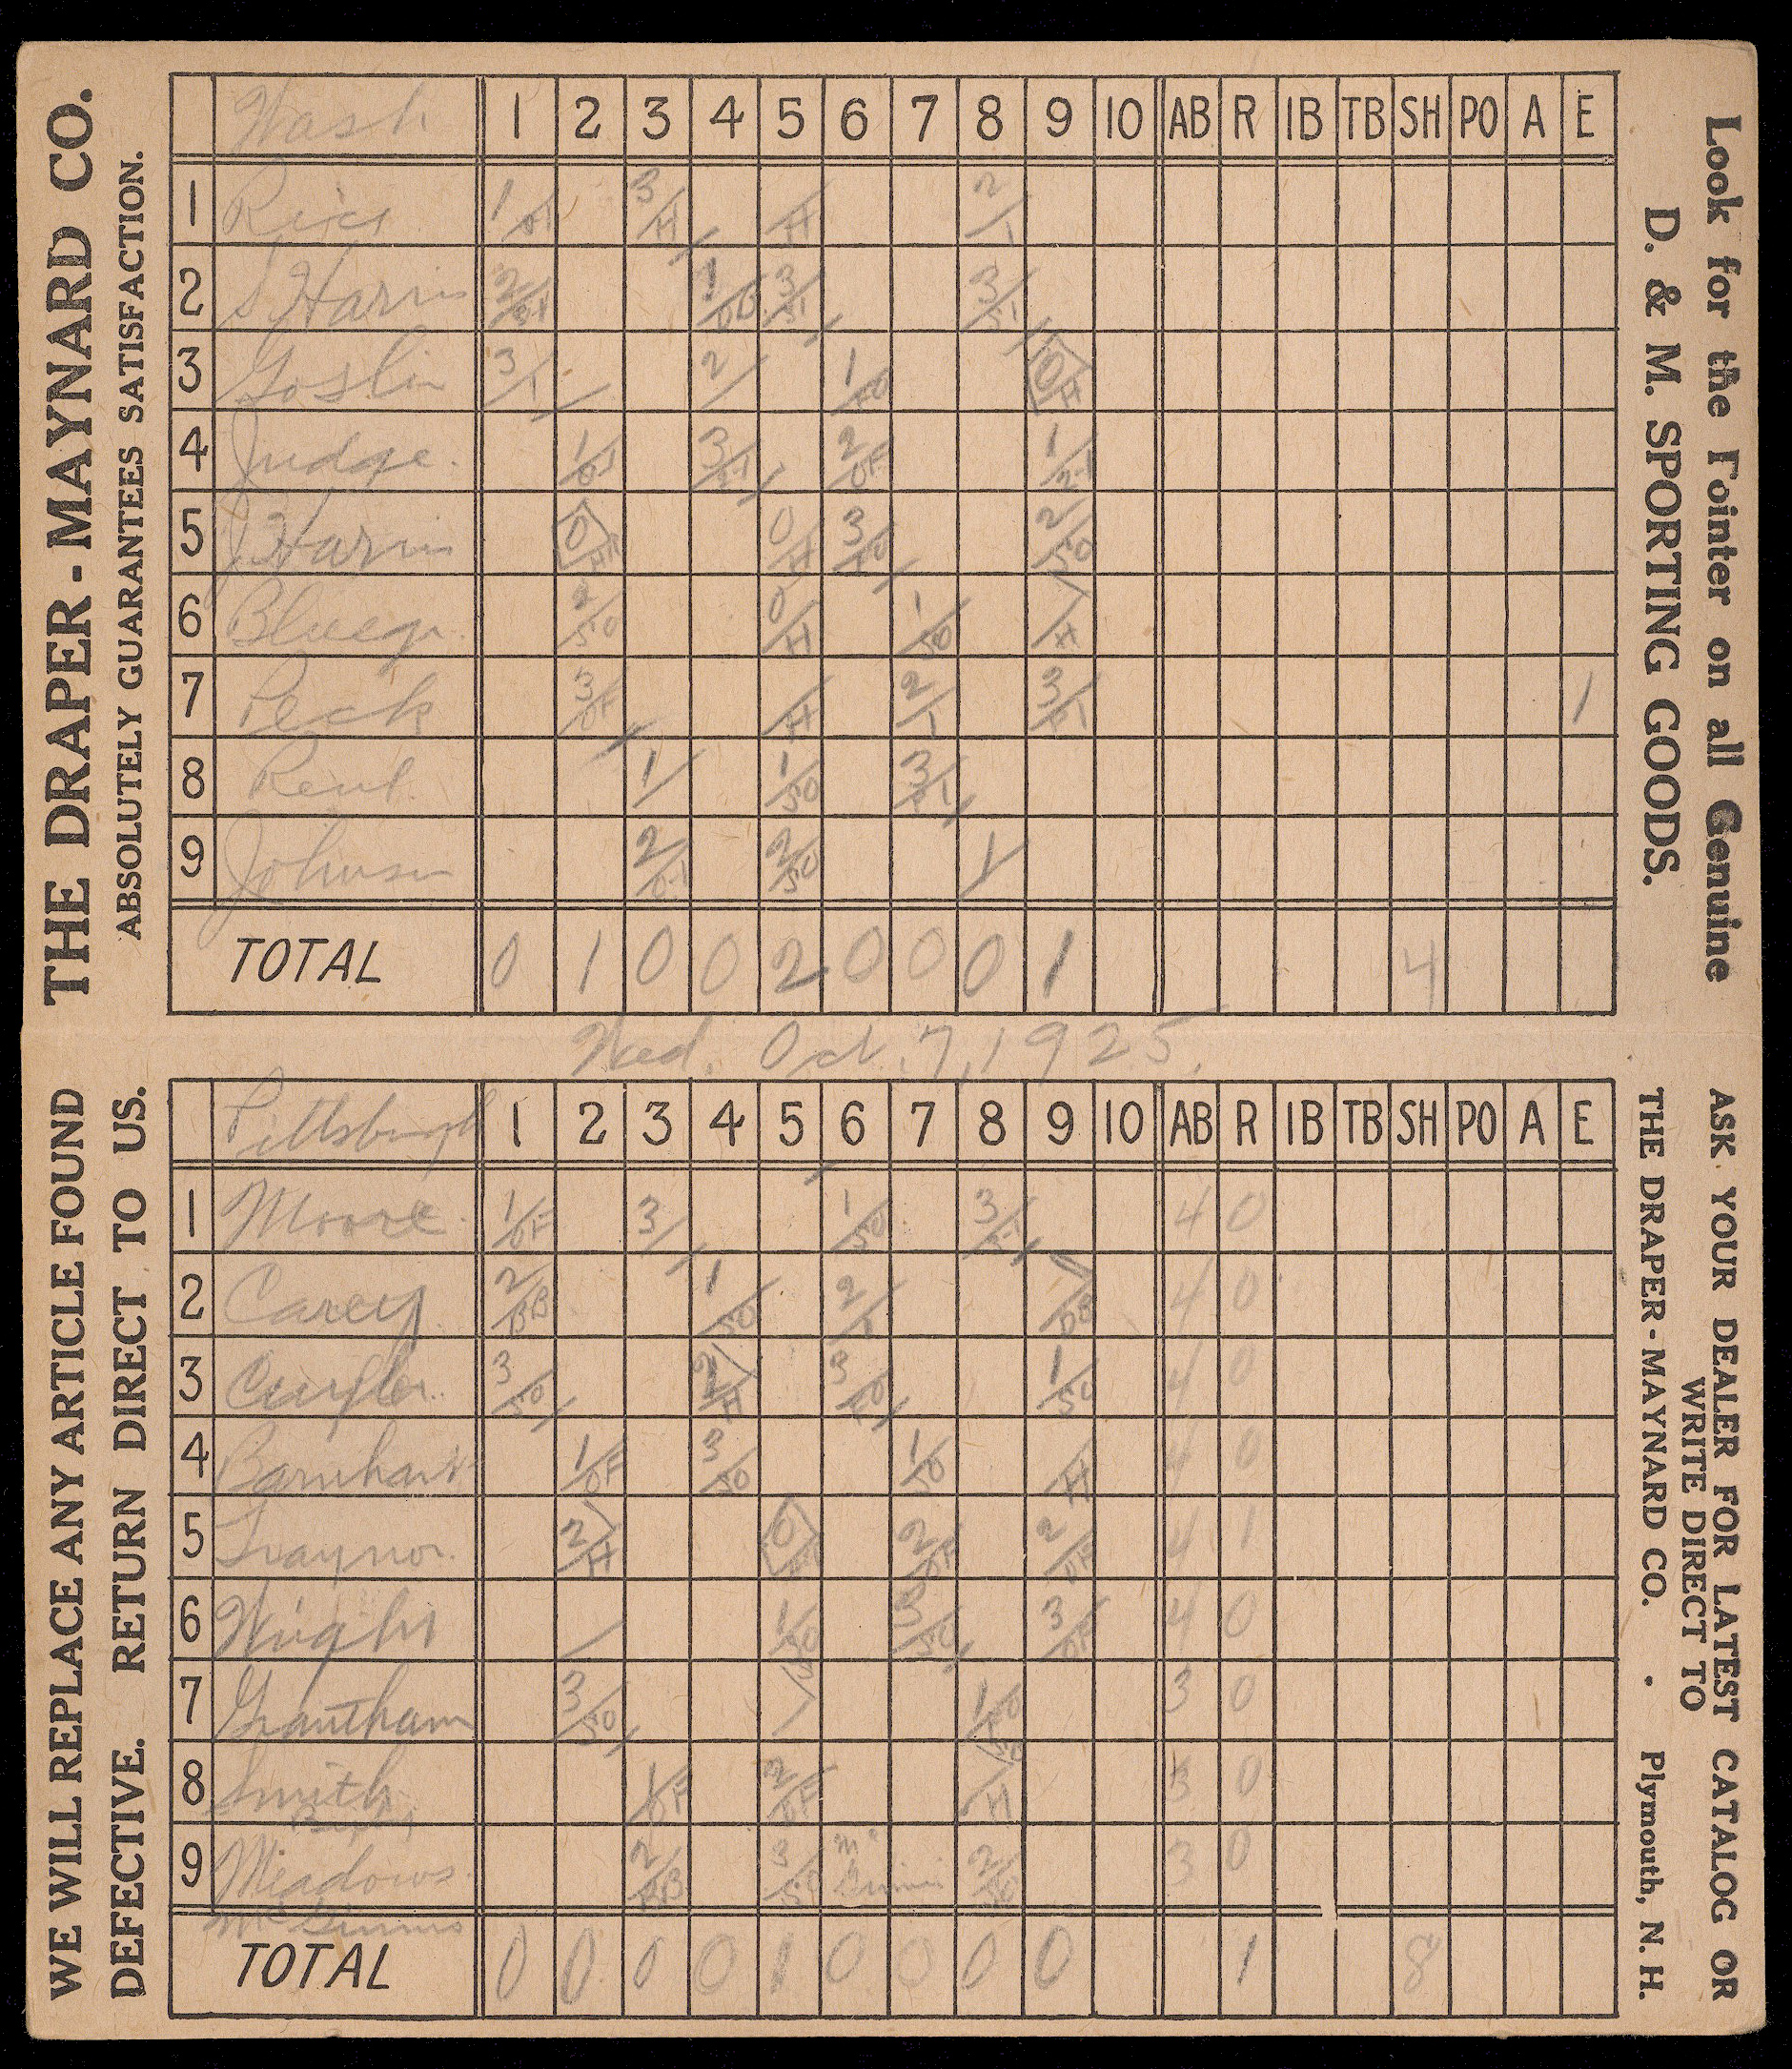 THE DRAPER-MAYNARD CO.
ABSOLUTELY GUARANTEES SATISFACTION.
WE WILL REPLACE ANY ARTICLE FOUND
DEFECTIVE. RETURN DIRECT TO US.
Wash 1 2 3 4 5 6 7 8 9 10 AB R 1B TB SH PO A E
1 Rice 1 3 H H 2
2 S Harris 2 1 3 3
3 Goslin 3 2 1 0 H
4 Judge 1 3 2 OF 1
5 J Harris 0 HR 0 H 3 2 SO
6 Bluege 2 SO 0 H 1 SO H
7 Peck 3 OF H 2 3 1
8 Reul 1 1 SO 3
9 Johnson 2 2 SO 1
TOTAL 0 1 0 0 2 0 0 0 1 4
Wed. Oct. 7, 1925.
Pittsburgh 1 2 3 4 5 6 7 8 9 10 AB R 1B TB SH PO A E
1 Moore 1 OF 3 1 SO 3 4 0
2 Carey 2 BB 1 SO 2 4 0
3 Cuyler 3 SO 2 H 3 FO 1 SO 4 0
4 Barnhart 1 OF 3 SO 1 SO H 4 0
5 Traynor 2 H 0 2 OF 2 OF 4 1
6 Wright 1 3 SO 3 OF 4 0
7 Grantham 3 SO 1 3 0
8 Smith 1 OF 2 OF H 3 0
9 Meadows 2 BB 3 SO 2 SO 3 0
McGinnis
TOTAL 0 0 0 0 1 0 0 0 0 1 8
Look for the Pointer on all Genuine
D. & M. SPORTING GOODS.
ASK YOUR DEALER FOR LATEST CATALOG OR
WRITE DIRECT TO
THE DRAPER-MAYNARD CO. • Plymouth, N. H.